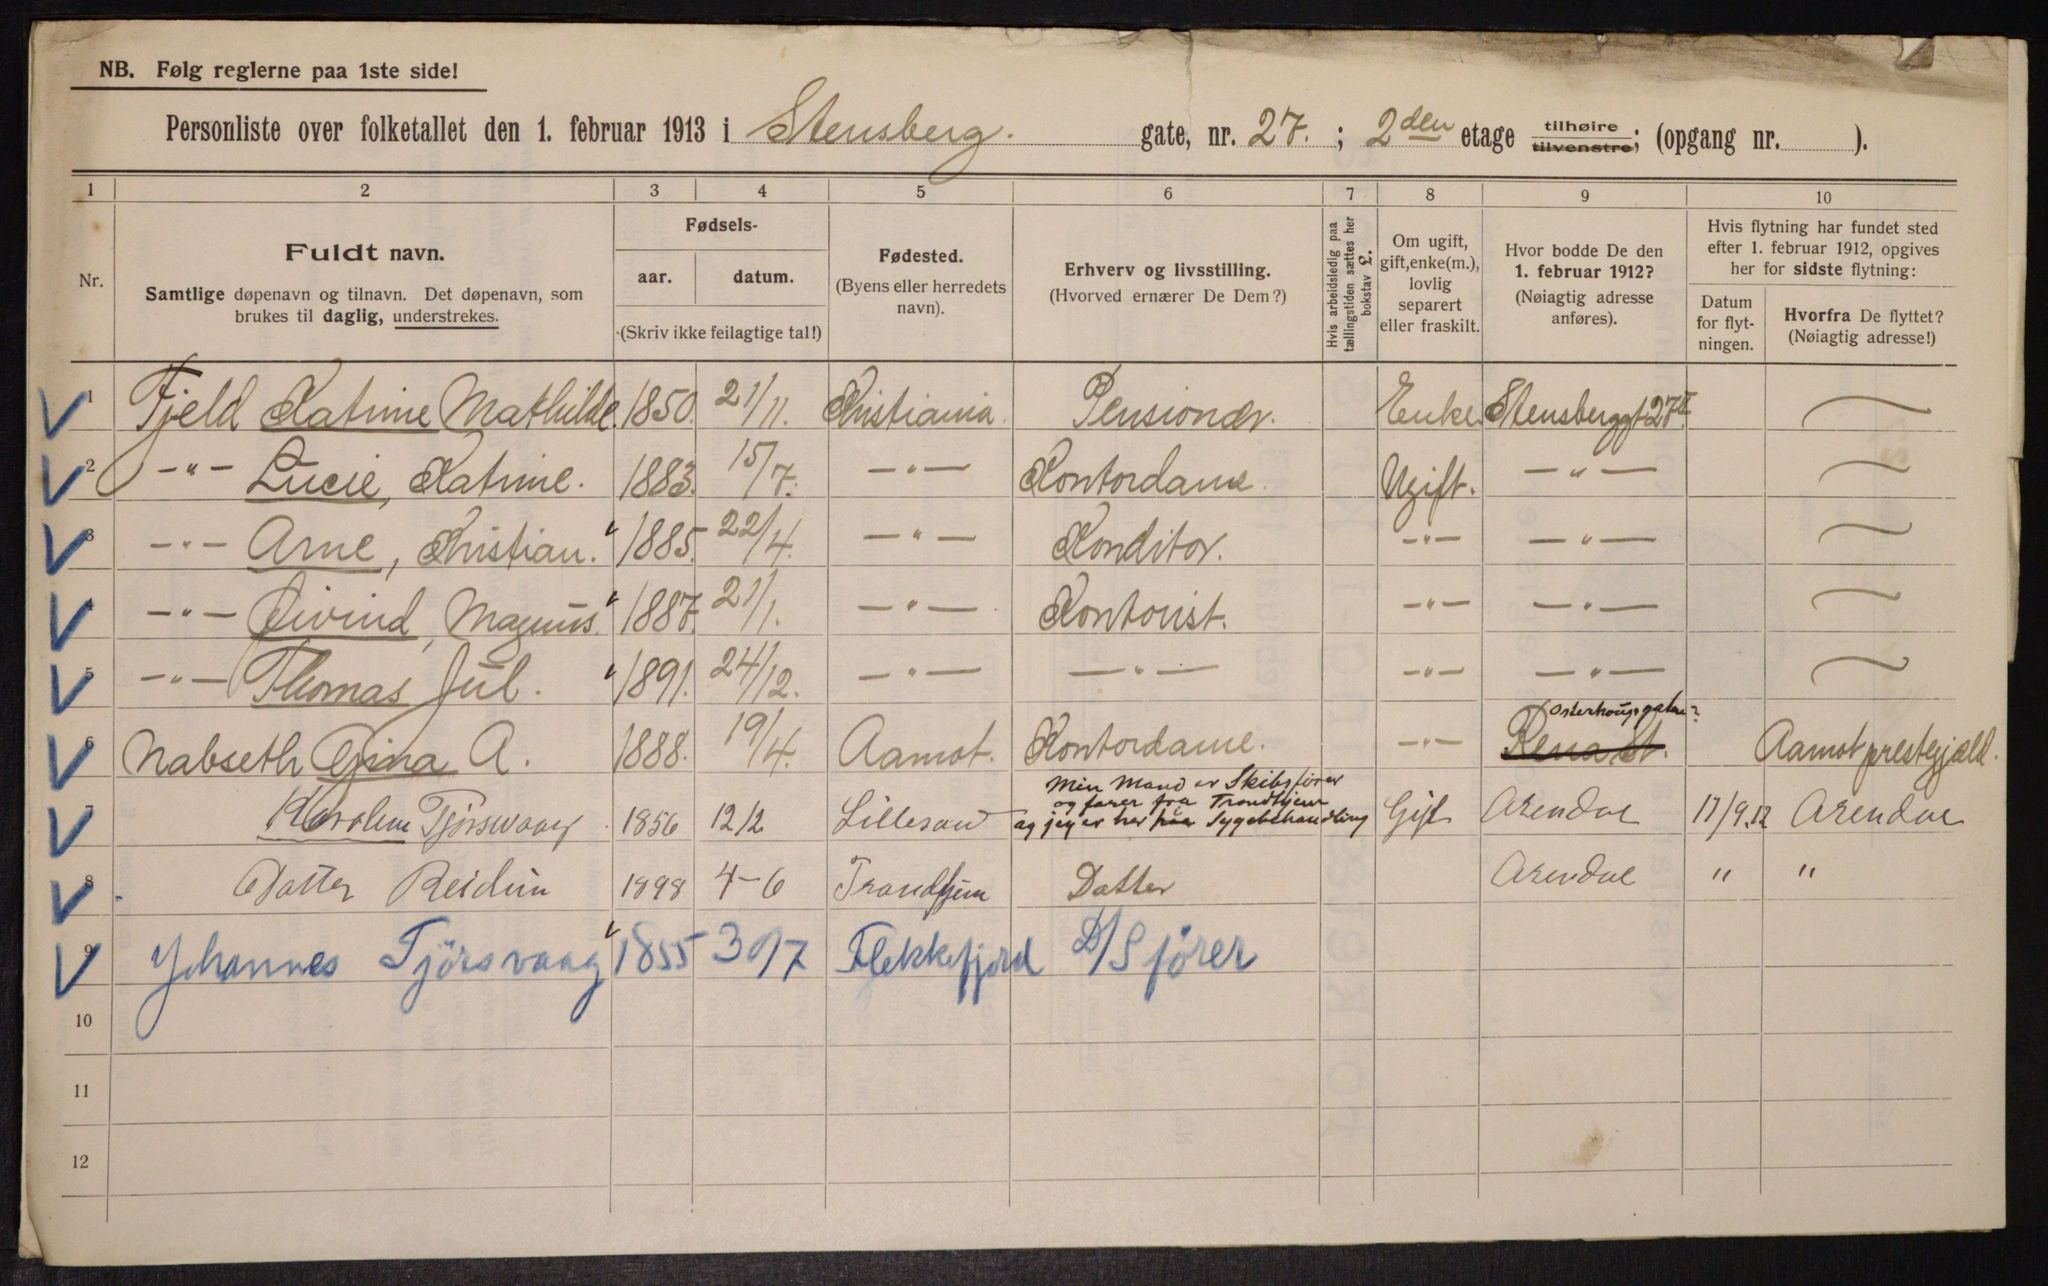 NB. Følg reglerne paa 1ste side!
Personliste over folketallet den 1. februar 1913 i Stensberg. gate, nr. 27. ; 2den etage tilhøire tilvenstre; (opgang nr. ).
1 2 3 4 5 6 7 8 9 10
Nr.
Fuldt navn.
Samtlige døpenavn og tilnavn. Det døpenavn, som
brukes til daglig, understrekes.
Fødsels-
aar. datum.
(Skriv ikke feilagtige tal!)
Fødested.
(Byens eller herredets
navn).
Erhverv og livsstilling.
(Hvorved ernærer De Dem?)
Hvis arbeidsledig paa
tællingstiden sættes her
bokstav L.
Om ugift,
gift, enke(m.),
lovlig
separert
eller fraskilt.
Hvor bodde De den
1. februar 1912?
(Nøiagtig adresse
anføres).
Hvis flytning har fundet sted
efter 1. februar 1912, opgives
her for sidste flytning:
Datum
for flyt-
ningen.
Hvorfra De flyttet?
(Nøiagtig adresse!)
1 Fjeld Katrine Mathilde. 1850. 21/11. Kristiania. Pensionær. Enke. Stensberggt 27II
2 -"- Lucie, Katrine. 1883. 15/7. -"- Kontordame. Ugift. -"-
3 -"- Arne, Kristian. 1885. 22/4. -"- Konditor. -"- -"-
4 -"- Øivind, Magnus. 1887. 21/1. -"- Kontorist. -"- -"-
5 -"- Thomas Jul. 1891. 24/12. -"- -"- -"- -"-
6 Nabseth Gina A. 1888. 19/4. Aamot. Kontordame. -"- Rena St. Aamot prestegjæld.
7 Tjørsvaag 1856 12/2 Lillesand Min Mand er Skibsfører
og farer fra Trondhjem
og jeg er her paa Sygebehandling Gift Arendal 17/9.12 Arendal
8 Datter Reidun 1898 4-6 Trondhjem Datter Arendal " "
9 Johannes Tjörsvaag 1855 30/7 Flekkefjord D/S fører
10
11
12